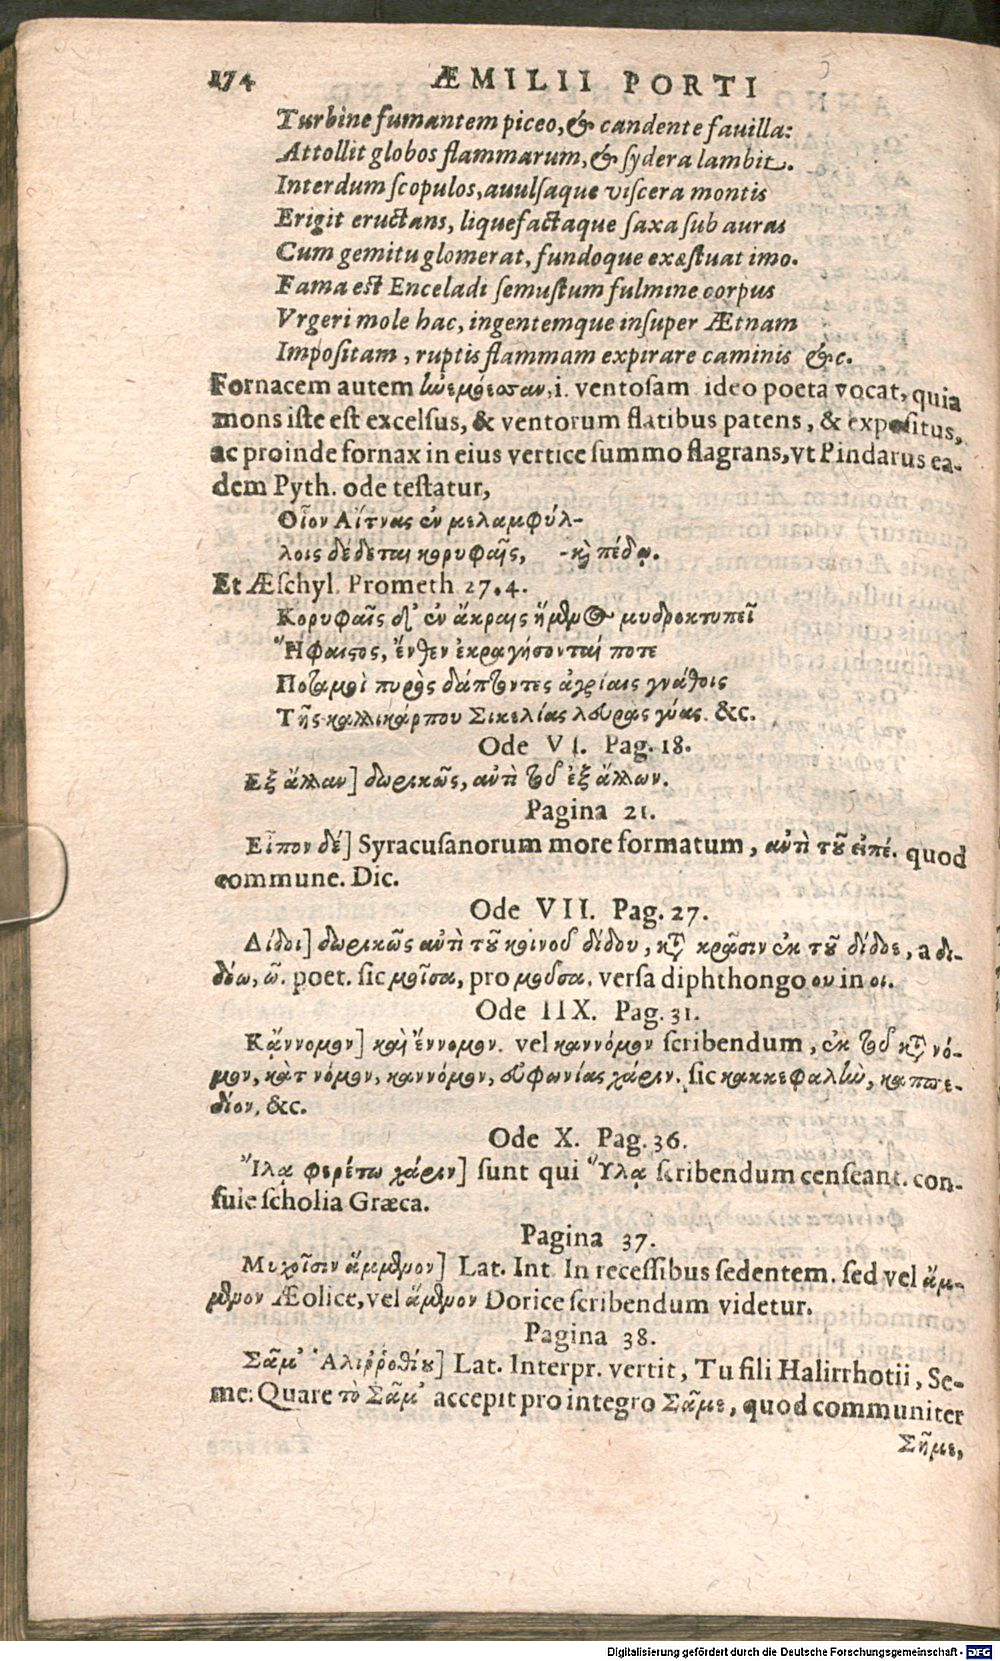 174 ÆMILII PORTI
Turbine fumantem piceo, & candente fauilla:
Attollit globos flammarum, & sydera lambit.
Interdum scopulos, auulsaque viscera montis
Erigit eructans, liquefactaque saxa sub auras
Cum gemitu glomerat, fundoque exæstuat imo.
Fama est Enceladi semustum fulmine corpus
Vrgeri mole hac, ingentemque insuper Ætnam
Impositam, ruptis flammam expirare caminis &c.
Fornacem autem ἠνεμόεσσαν, i. ventosam ideo poeta vocat, quia
mons iste est excelsus, & ventorum flatibus patens, & expositus,
ac proinde fornax in eius vertice summo flagrans, vt Pindarus ea-
dem Pyth. ode testatur,
Οἷον Αἴτνας ἐν μελαμφύλ-
λοις δέδεται κορυφαῖς, -καὶ πέδῳ.
Et Æschyl. Prometh 27.4.
Κορυφαῖς δ' ἐν ἄκραις ἥμενος μυδροκτυπεῖ
Ἥφαιστος, ἔνθεν ἐκραγήσονταί ποτε
Ποταμοὶ πυρὸς δάπτοντες ἀγρίαις γνάθοις
Τῆς καλλικάρπου Σικελίας λευρὰς γύας. &c.
Ode VI. Pag. 18.
Εξ ἄλλαν] δωρικῶς, αὐτὶ τοῦ ἐξ ἄλλων.
Pagina 21.
Εἶπον δέ] Syracusanorum more formatum, αὐτὶ τοῦ εἰπέ. quod
commune. Dic.
Ode VII. Pag. 27.
Δίδοι] δωρικῶς αὐτὶ τοῦ κοινοῦ δίδου, κατὰ κρᾶσιν ἐκ τοῦ δίδοε, a δι-
δόω, ῶ. poet. sic μοῖσα, pro μοῦσα. versa diphthongo ου in οι.
Ode IIX. Pag. 31.
Κἄννομον] καὶ ἔννομον. vel καννόμον scribendum, ἐκ τοῦ κατὰ νό-
μον, κὰτ νόμον, καννόμον, εὐφωνίας χάριν. sic κακκεφαλὴν, καππε-
δίον, &c.
Ode X. Pag. 36.
Ἴλᾳ φερέτω χάριν] sunt qui Ὕλᾳ scribendum censeant. con-
sule scholia Græca.
Pagina 37.
Μυχοῖσιν ἄμμενον] Lat. Int. In recessibus sedentem. sed vel ἄμ-
μενον Æolice, vel ἅμενον Dorice scribendum videtur.
Pagina 38.
Σᾶμ' Ἁλιῤῥοθίου] Lat. Interpr. vertit, Tu fili Halirrhotii, Se-
me: Quare τὸ Σᾶμ' accepit pro integro Σᾶμε, quod communiter
Σῆμε,
Digitalisierung gefördert durch die Deutsche Forschungsgemeinschaft - DFG